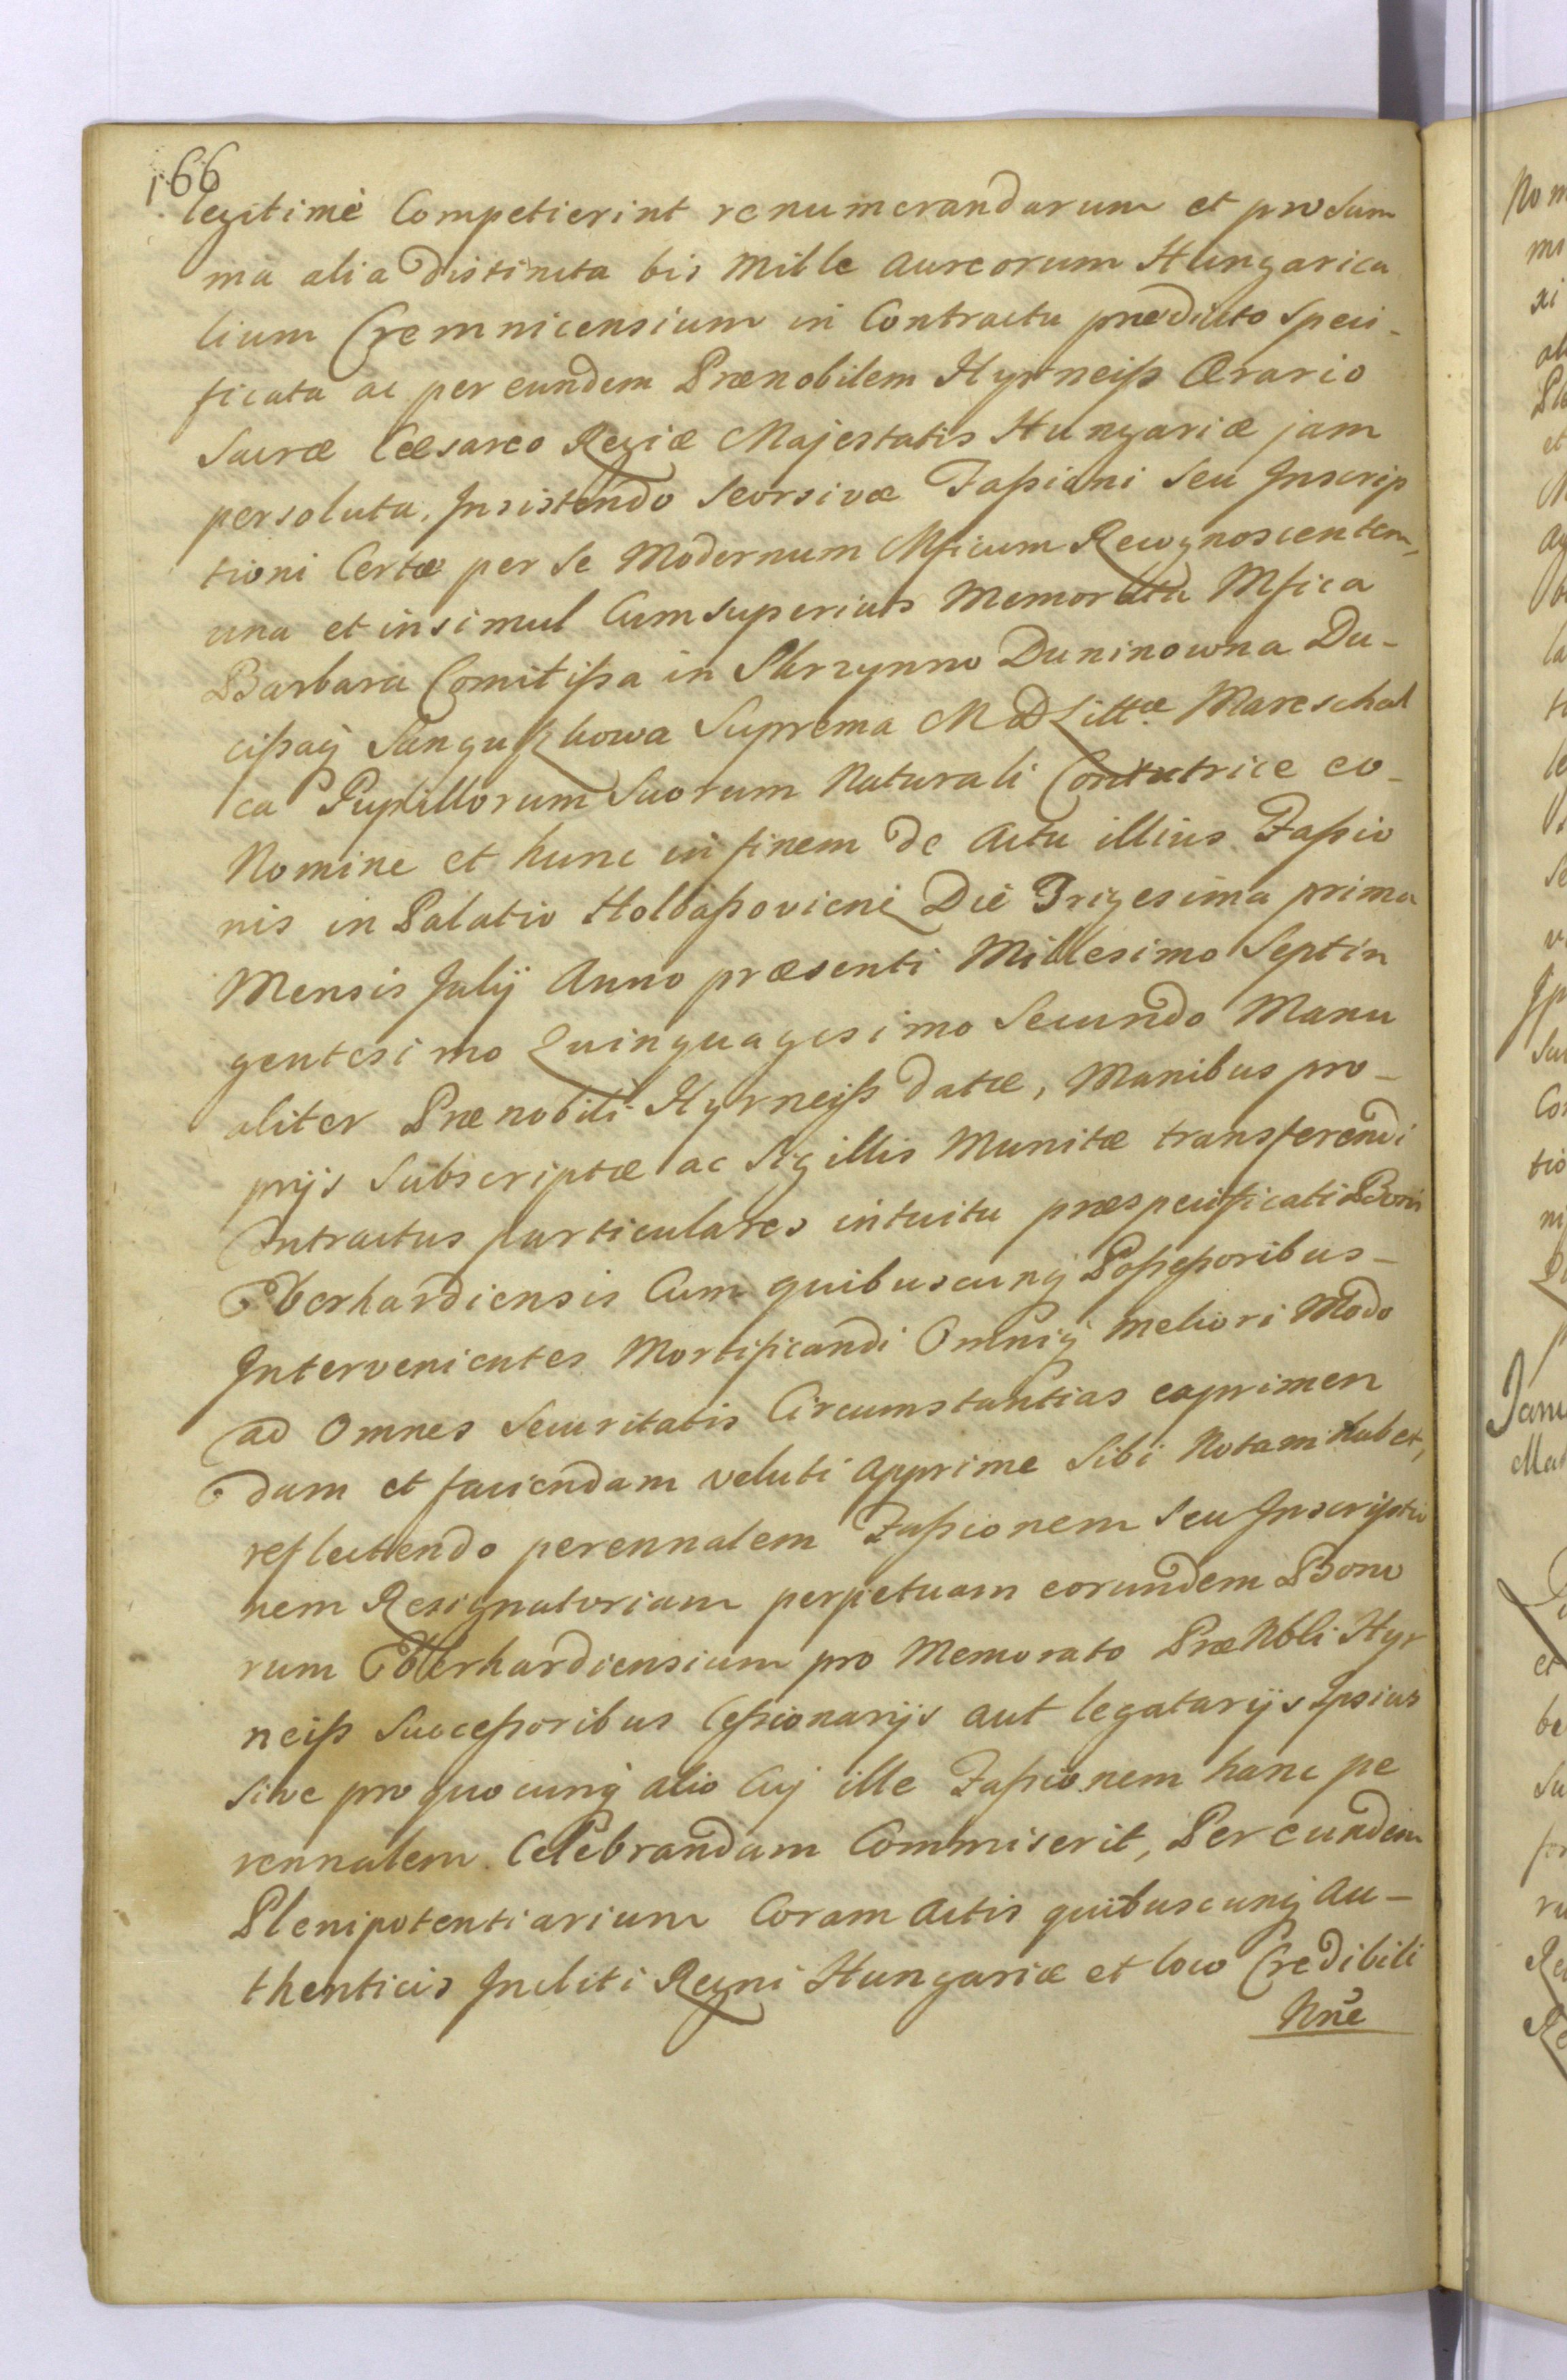 166
legitimè Competierint renumerandarum et pro Sum
ma alia distincta bis Mille Aureorum Hungarica
lium Cremnicensium in Contractu prædicto Speci-
ficata ac per eundem Prænobilem Hyrneiß Ærario
Sacræ Cæsareo Regiæ Majestatis Hungariæ jam
persoluta, Insistendo Seorsivæ Faßioni Seu Inscrip
tioni Certæ per Se Modernum Mficum Recognoscentem,
una et insimul Cum Superius Memorata Mfica
Barbara Comitißa in Skrzynno Duninowna Du-
cißaq Sanguszkowa Suprema M D Littæ Mareschal
ca Pupillorum Suorum Naturali Contutrice eo-
Nomine et hunc in finem de Actu illius Faßio
nis in Palatio Kolbaßovieni Die Trigesima prima
Mensis Julij Anno præsenti Millesimo Septin
gentesimo Quinquagesimo Secundo Manu
aliter Prænobili Hyrneiß datæ, Manibus pro-
prijs Subscriptæ ac Sigillis Munitæ transferendi
Contractus particulares intuitu præspecificati Boni
Eberhardiensis Cum quibuscunq Poßeßoribus-
Intervenientes Mortificandi Omniq meliori Modo
ad Omnes Securitatis Circumstantias exprimen
dam et faciendam veluti apprime Sibi Notam habet,
reflectendo perennalem Faßionem Seu Inscriptio
nem Resignatoriam perpetuam eorundem Bono
rum Eberhardiensium pro Memorato PræNbli Hyr
neiß Succeßoribus Ceßionarijs aut legatarijs Ipsius
Sive pro quocunq alio Cuj ille Faßionem hanc pe
rennalem Celebrandam Commiserit, Per eundem
Plenipotentiarium Coram Actis quibuscunq Au-
thenticis Incliti Regni Hungariæ et loco Credibili
Nnẽ